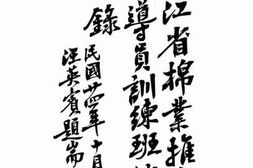 江省棉業推
導員訓練班
錄
民國廿四年十月
汪英賓題耑